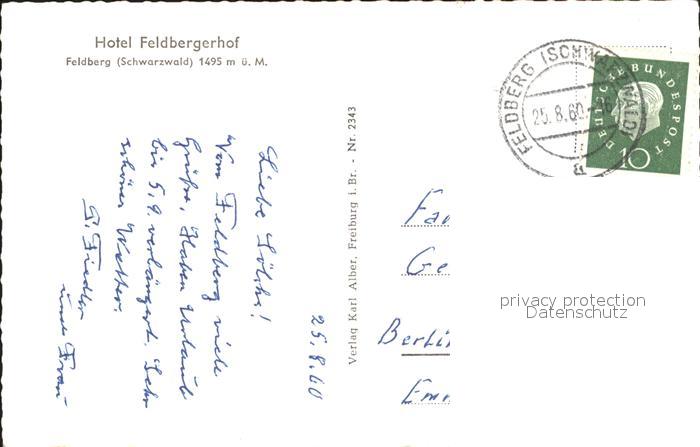 Hotel Feldbergerhof
Feldberg (Schwarzwald) 1495 m ü. M.
25.8.60
Liebe
Vom Feldberg viele
Grüße, Haben Urlaub
bis 5.9. verlängert. Sehr
schönes Wetter.
Fiedler
und Frau
Verlag Karl Alber, Freiburg i.Br. - Nr. 2343
FELDBERG (SCHWARZWALD)
25.8.60
a
DEUTSCHE BUNDESPOST
10
Fa
Ge
Berli
Em
privacy protection
Datenschutz